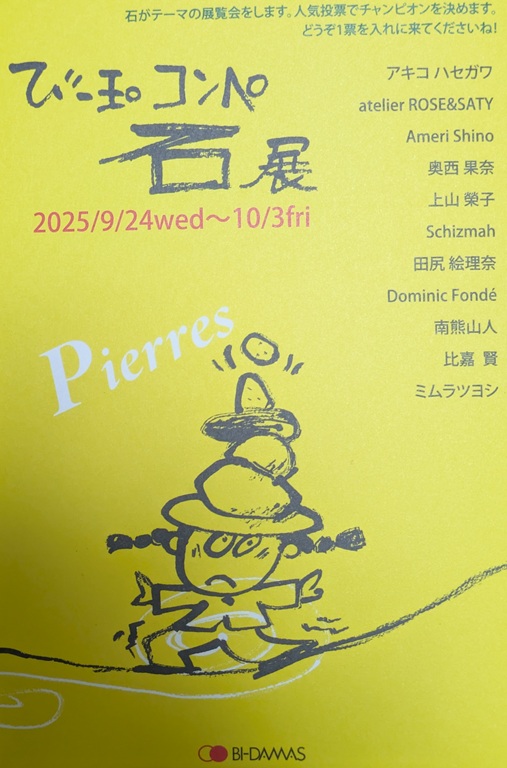 石がテーマの展覧会をします。人気投票でチャンピオンを決めます。
どうぞ1票を入れに来てくださいね!
びー玉。コンペ
石展
2025/9/24wed～10/3fri
アキコ ハセガワ
atelier ROSE&SATY
Ameri Shino
奥西 果奈
上山 榮子
Schizmah
田尻 絵理奈
Dominic Fondé
南熊山人
比嘉 賢
ミムラツヨシ
Pierres
BI-DAMAS